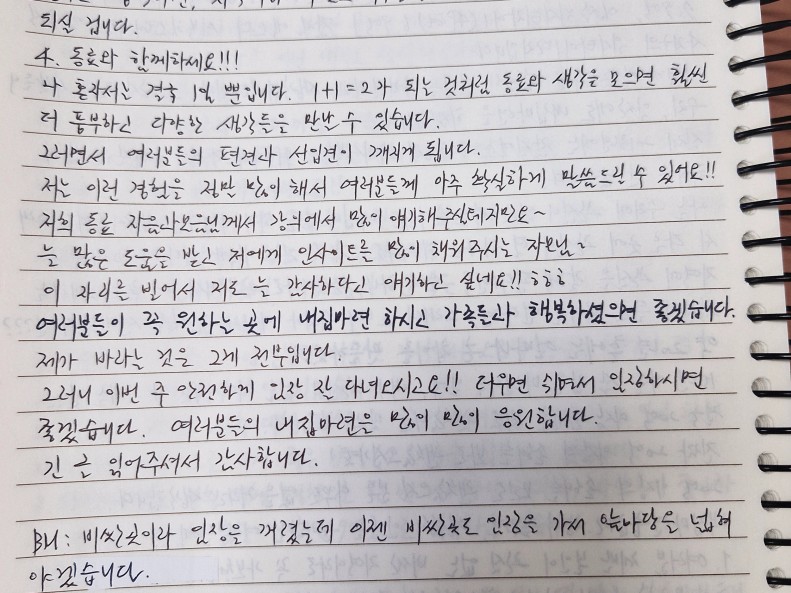 되실 겁니다.
4. 동료와 함께하세요!!!
→ 혼자서는 결국 1일 뿐입니다. 1+1=2가 되는 것처럼 동료와 생각을 모으면 훨씬
더 풍부하고 다양한 생각들을 만날 수 있습니다.
그러면서 여러분들의 편견과 선입견이 깨지게 됩니다.
저는 이런 경험을 정말 많이 해서 여러분들께 아주 확실하게 말씀드릴 수 있어요!!
저희 동료 자음과모음님께서 강의에서 많이 얘기해주셨테지만요~
늘 많은 도움을 받고 저에게 인사이트를 많이 채워주시는 자모님~
이 자리를 빌어서 저도 늘 감사하다고 얘기하고 싶네요!! ㅎㅎㅎ
여러분들이 꼭 원하는 곳에 내집마련 하시고 가족들과 행복하셨으면 좋겠습니다.
제가 바라는 것은 그게 전부입니다.
그러니 이번 주 안전하게 임장 잘 다녀오시고요!! 더우면 쉬면서 임장하시면
좋겠습니다. 여러분들의 내집마련은 많이 많이 응원합니다.
긴 글 읽어주셔서 감사합니다.
BM : 비싼곳이라 임장을 꺼렸는데 이젠 비싼곳도 임장을 가서 앞마당을 넓혀
야겠습니다.